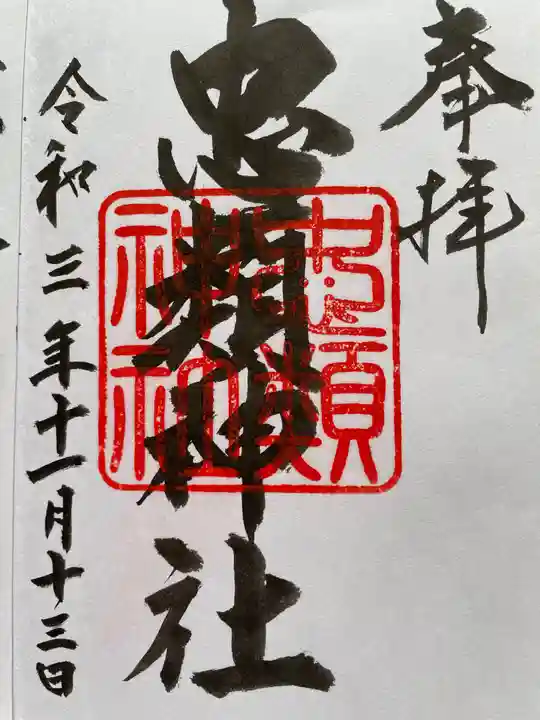 奉拝
忠類神社
忠類
神社
令和三年十一月十三日